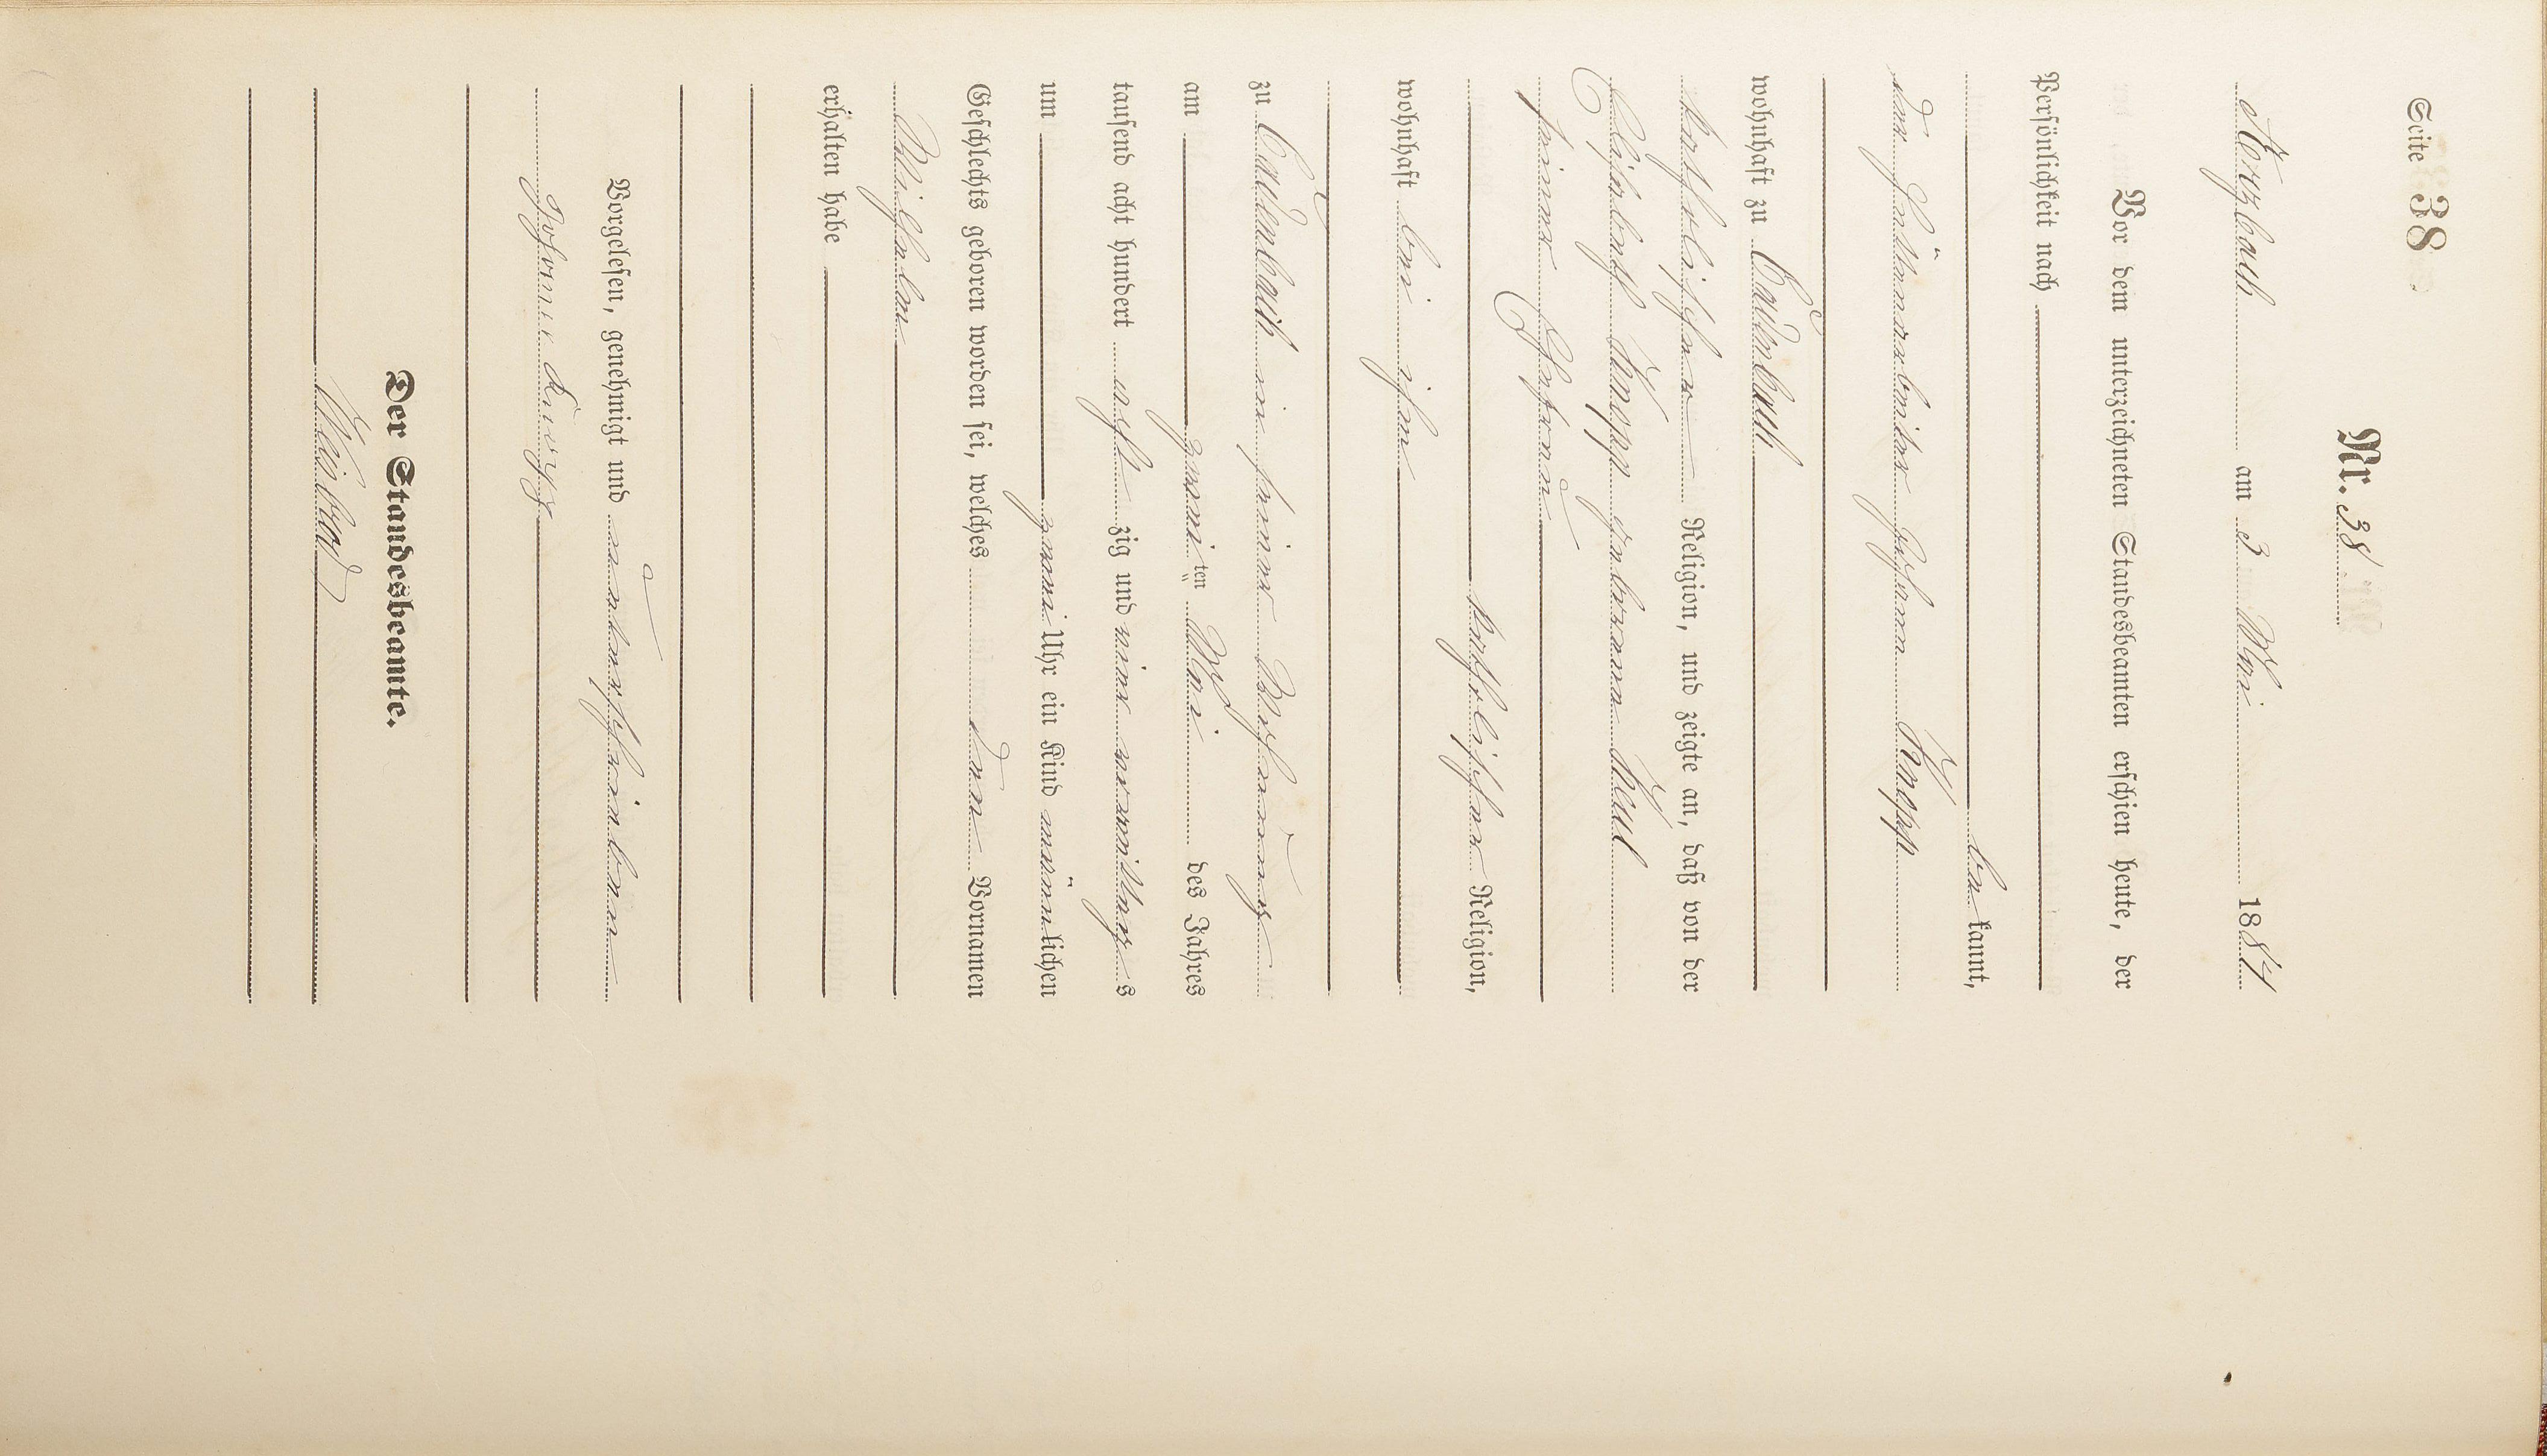 Seite 38
Nr. 38
am 3 Mai 1884
Vor dem unterzeichneten Standesbeamten erschien heute, der
Persönlichkeit nach
bekannt,
der Hüttenarbeiter Johann Knopp
wohnhaft zu Cadenbach
katholischer Religion, und zeigte an, daß von der
Elisabeth Knopp geborenen Keul
seiner Ehefrau
katholischer Religion,
wohnhaft bei ihm
zu Cadenbach in seiner Wohnung
am zweiten Mai des Jahres
tausend acht hundert acht zig und vier vormittags
um zwei Uhr ein Kind männlichen
Geschlechts geboren worden sei, welches den Vornamen
Wilhelm
erhalten habe
Vorgelesen, genehmigt und unterschrieben
Johann
Der Standesbeamte.